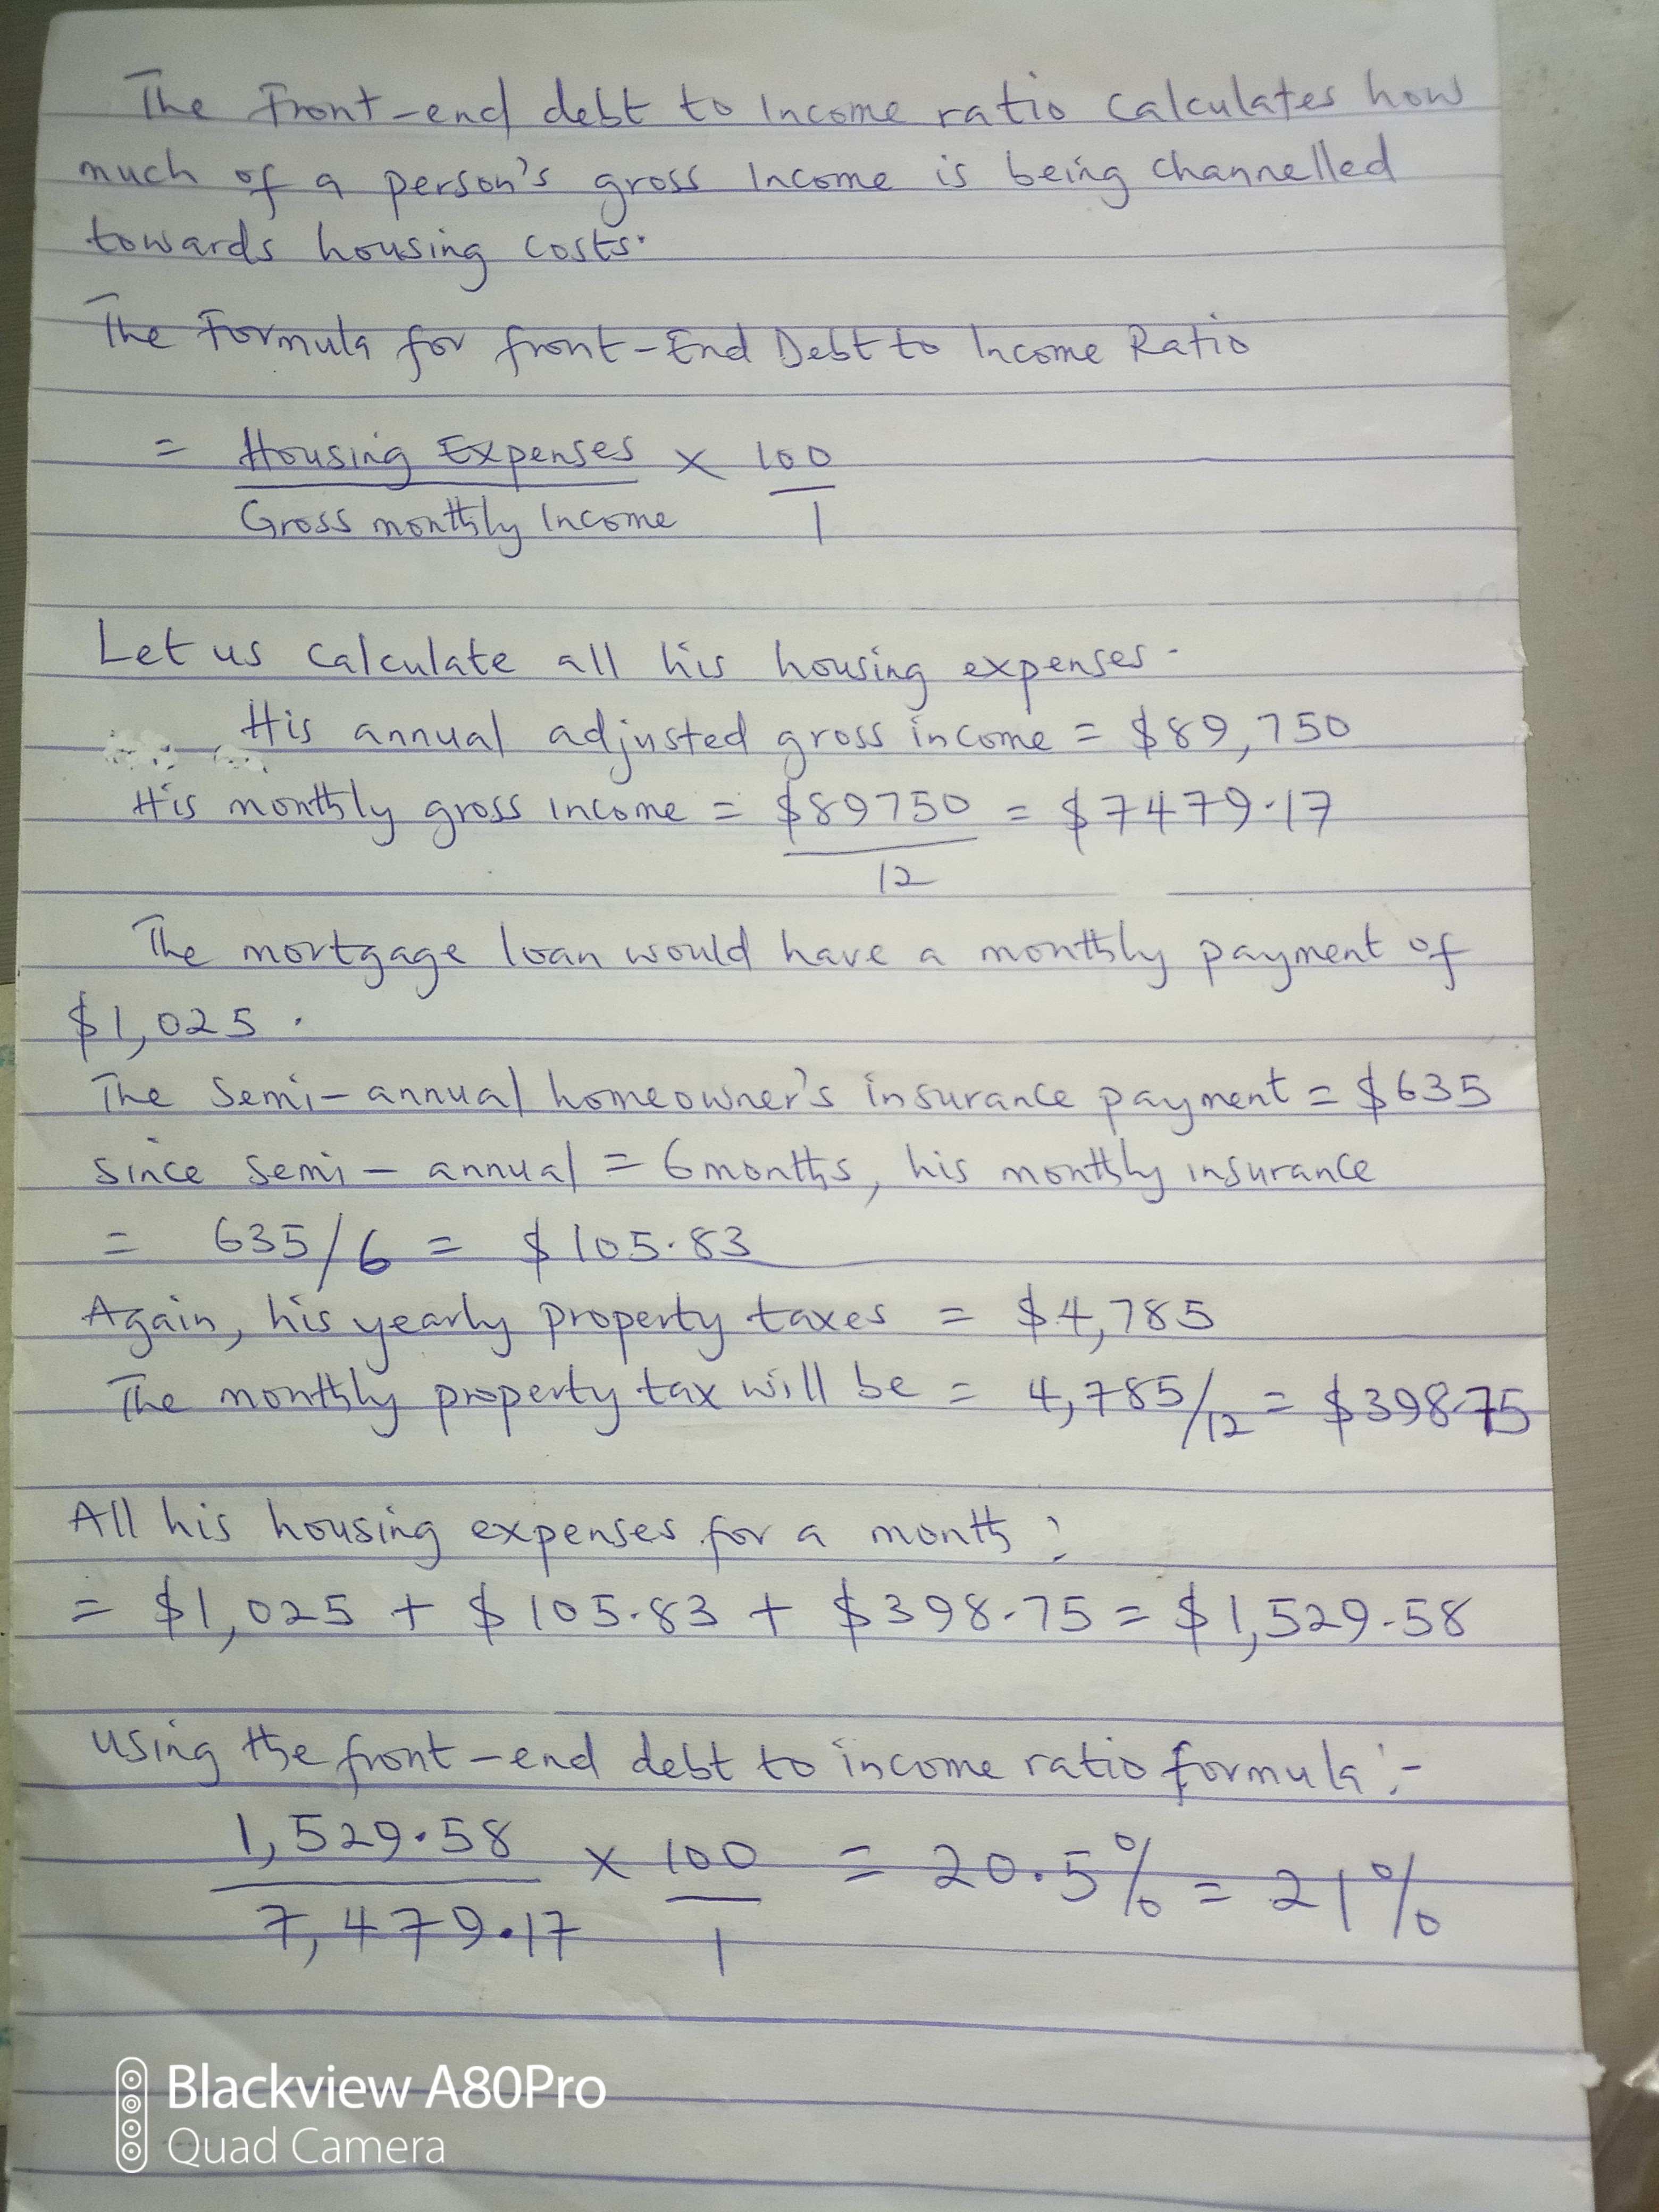 The Front-end debt to Income ratio calculates how
much of a person's gross Income is being channelled
towards housing costs.
The Formula for front-End Debt to Income Ratio
= Housing Expenses × 100
Gross monthly Income 1
Let us calculate all his housing expenses.
His annual adjusted gross income = $89,750
His monthly gross income = $89750 = $7479.17
12
The mortgage loan would have a monthly payment of
$1,025.
The Semi-annual homeowner's insurance payment = $635
since semi-annual = 6 months, his monthly insurance
= 635/6 = $105.83
Again, his yearly property taxes = $4,785
The monthly property tax will be = 4,785/12 = $398.75
All his housing expenses for a month:
= $1,025 + $105.83 + $398.75 = $1,529.58
using the front-end debt to income ratio formula:-
1,529.58 × 100 = 20.5% = 21%
7,479.17 1
Blackview A80Pro
Quad Camera